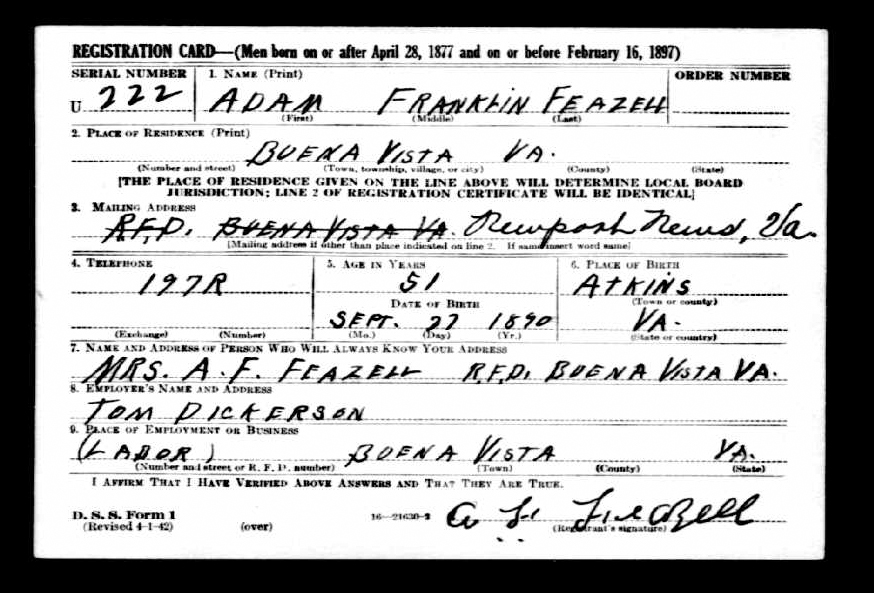 REGISTRATION CARD—(Men born on or after April 28, 1877 and on or before February 16, 1897)
SERIAL NUMBER 1. NAME (Print) ORDER NUMBER
U 222 ADAM FRANKLIN FEAZELL
(First) (Middle) (Last)
2. PLACE OF RESIDENCE (Print)
BUENA VISTA VA.
(Number and street) (Town, township, village, or city) (County) (State)
[THE PLACE OF RESIDENCE GIVEN ON THE LINE ABOVE WILL DETERMINE LOCAL BOARD
JURISDICTION; LINE 2 OF REGISTRATION CERTIFICATE WILL BE IDENTICAL]
3. MAILING ADDRESS
R.F.D. BUENA VISTA VA. Newport News, Va.
[Mailing address if other than place indicated on line 2. If same insert word same]
4. TELEPHONE 5. AGE IN YEARS 6. PLACE OF BIRTH
197R 51 ATKINS
DATE OF BIRTH (Town or county)
SEPT. 27 1890 VA.
(Exchange) (Number) (Mo.) (Day) (Yr.) (State or country)
7. NAME AND ADDRESS OF PERSON WHO WILL ALWAYS KNOW YOUR ADDRESS
MRS. A. F. FEAZELL R.F.D. BUENA VISTA VA.
8. EMPLOYER'S NAME AND ADDRESS
TOM DICKERSON
9. PLACE OF EMPLOYMENT OR BUSINESS
(LABOR) BUENA VISTA VA.
(Number and street or R. F. D. number) (Town) (County) (State)
I AFFIRM THAT I HAVE VERIFIED ABOVE ANSWERS AND THAT THEY ARE TRUE.
D. S. S. Form 1
(Revised 4-1-42) (over) 16—21630-2 A F Feazell
(Registrant's signature)